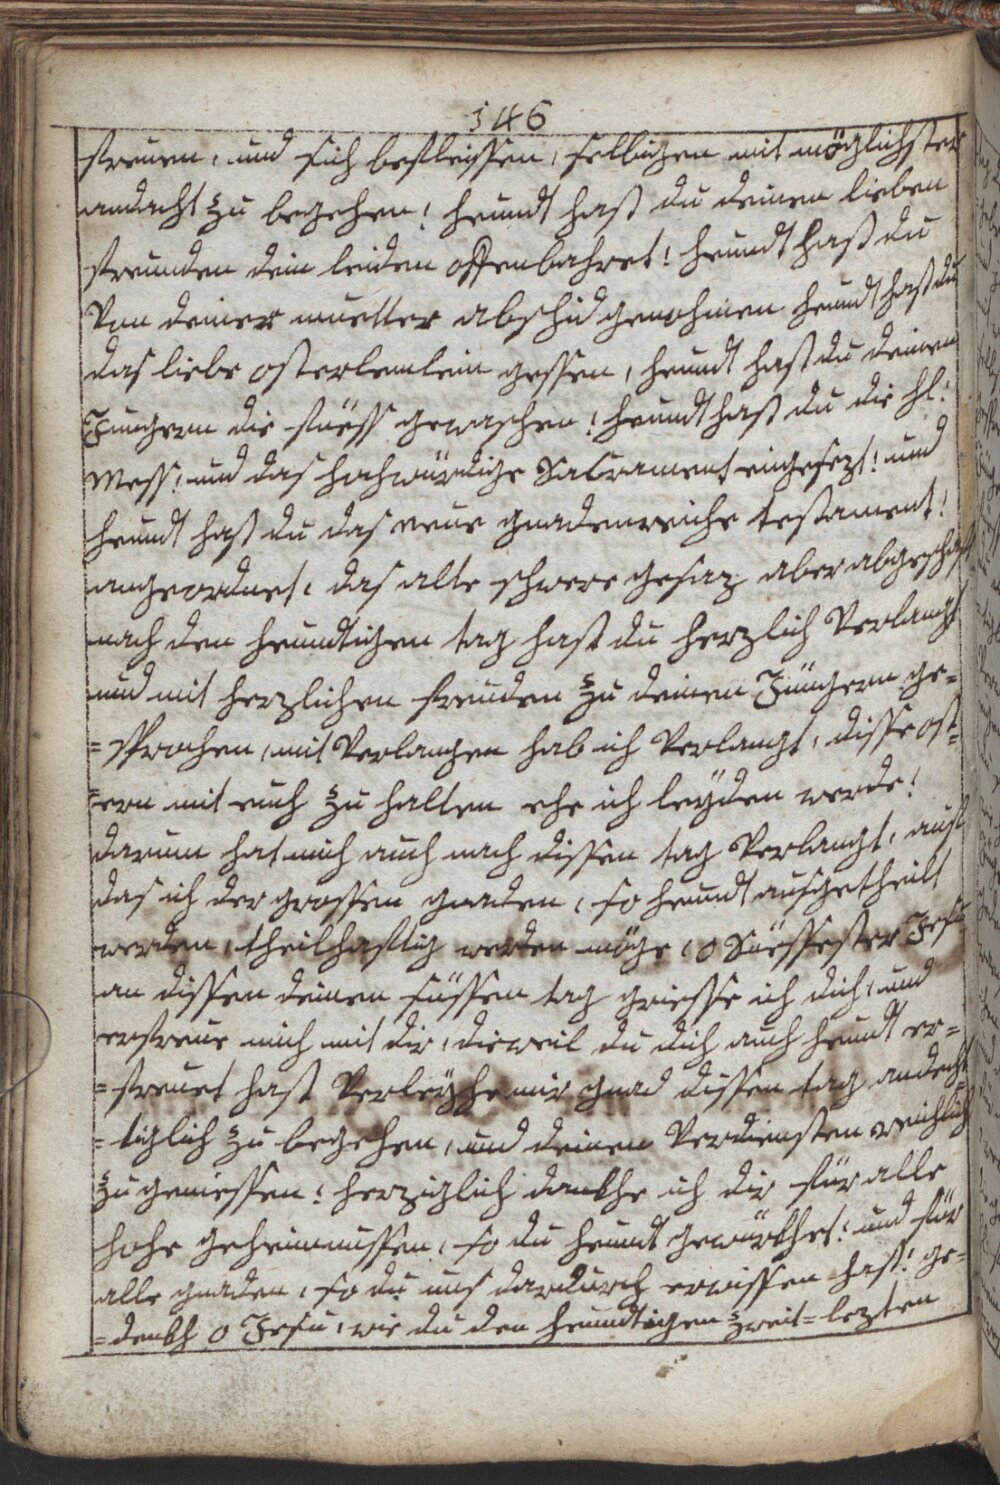 146
freuen, und sich befleissen, selbigen mit möglichster
andacht zu begehen! heundt hast du deinen lieben
freunden dein leiden offenbahret! heundt hast du
Von deiner muetter abschid genohmen heundt hast du
das liebe osterlemlein gessen, heundt hast du deinen
Jungern die füess gewaschen! heundt hast du die hl:
Mess: und das hochwürdige Sacrament eingesezt! und
heundt hast du das neue gnadenreiche testament!
angeordnet. das alte schwere gesaz aber abgeschaft
nach den heundtigen tag hast du herzlich Verlangt
und mit herzlichen freuden zu deinen Jüngern ge-
=sprochen, mit Verlangen hab ich Verlangt, disse ost-
=ern mit euch zu halten ehe ich leyden werde!
darum hat mich auch nach dissen tag Verlangt, auf
das ich der grossen gnaden, so heundt ausgetheilt
werden, theilhafftig werden möge, o Süessester Jesu
an dissen deinen süssen tag griesse ich dich, und
erfreue mich mit dir, dieweil du dich auch heundt er=
=freuet hast Verleyhe mir gnad dissen tag andech-
=tiglich zu begehen, und deinen Verdiensten reichlich
zu geniessen! herziglich dankhe ich dir für alle
hohe geheimnussen, so du heundt gewürkhet! und für
alle gnaden, so du uns dardurch erwissen hast! ge=
=denkh o Jesu, wie du den heundtigen zweit=lezten